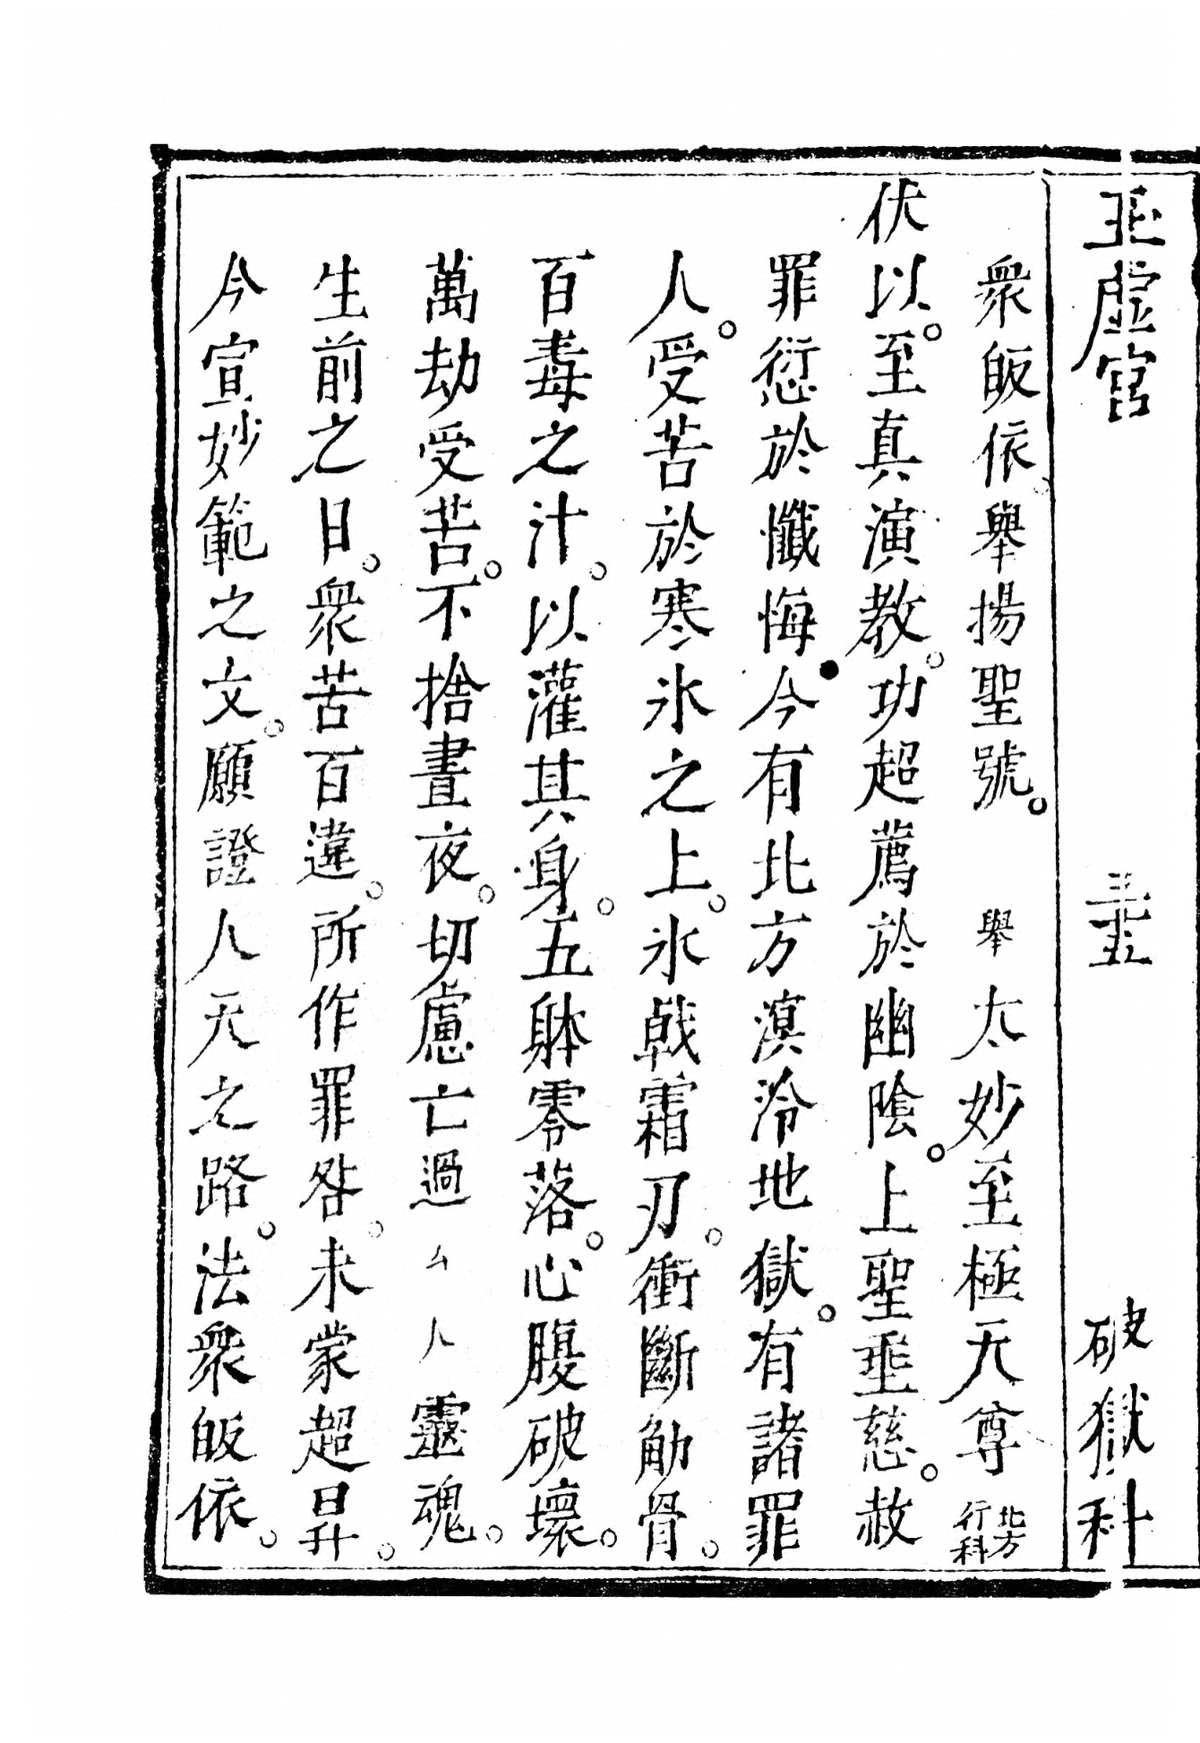 玉虛宮　三十五　破獄科
衆皈依舉揚聖號。舉太妙至極天尊 北方行科
伏以。至真演教。功超薦於幽陰。上聖垂慈。赦
罪愆於懺悔。今有北方溟泠地獄。有諸罪
人。受苦於寒氷之上。氷戟霜刃。衝斷觔骨。
百毒之汁。以灌其身。五躰零落。心腹破壞。
萬劫受苦。不捨晝夜。切慮亡過ム人靈魂。
生前之日。衆苦百違。所作罪咎。未蒙超昇。
今宣妙範之文。願證人天之路。法衆皈依。